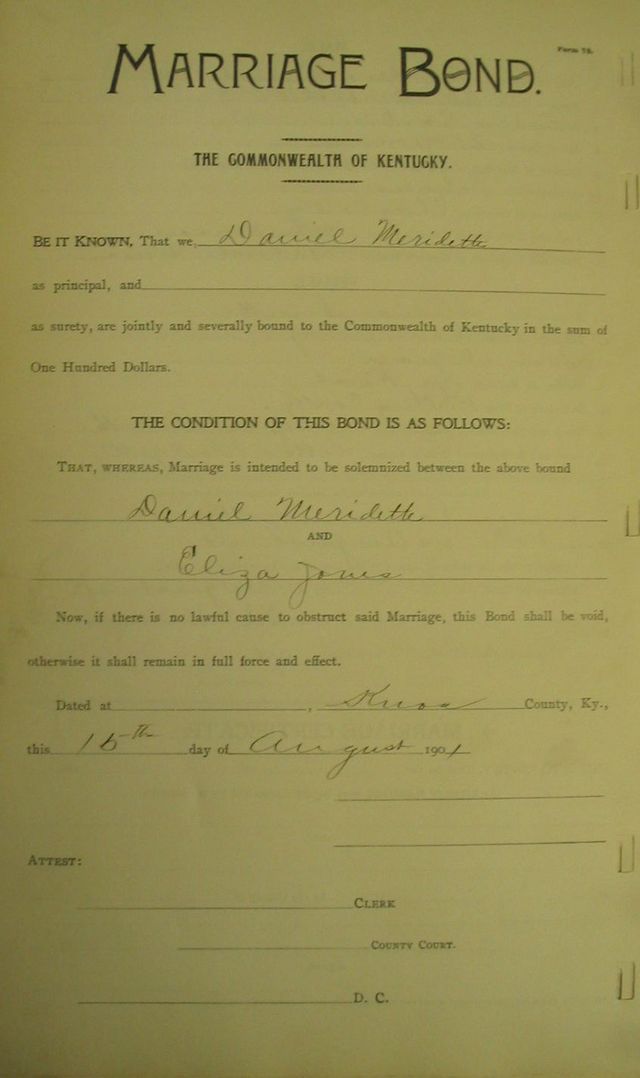 Form 78.
MARRIAGE BOND.
THE COMMONWEALTH OF KENTUCKY.
BE IT KNOWN, That we, Daniel Meridette
as principal, and
as surety, are jointly and severally bound to the Commonwealth of Kentucky in the sum of
One Hundred Dollars.
THE CONDITION OF THIS BOND IS AS FOLLOWS:
THAT, WHEREAS, Marriage is intended to be solemnized between the above bound
Daniel Meridette
AND
Eliza Jones
Now, if there is no lawful cause to obstruct said Marriage, this Bond shall be void,
otherwise it shall remain in full force and effect.
Dated at , Knox County, Ky.,
this 15th day of August 1901
ATTEST:
CLERK
COUNTY COURT.
D. C.